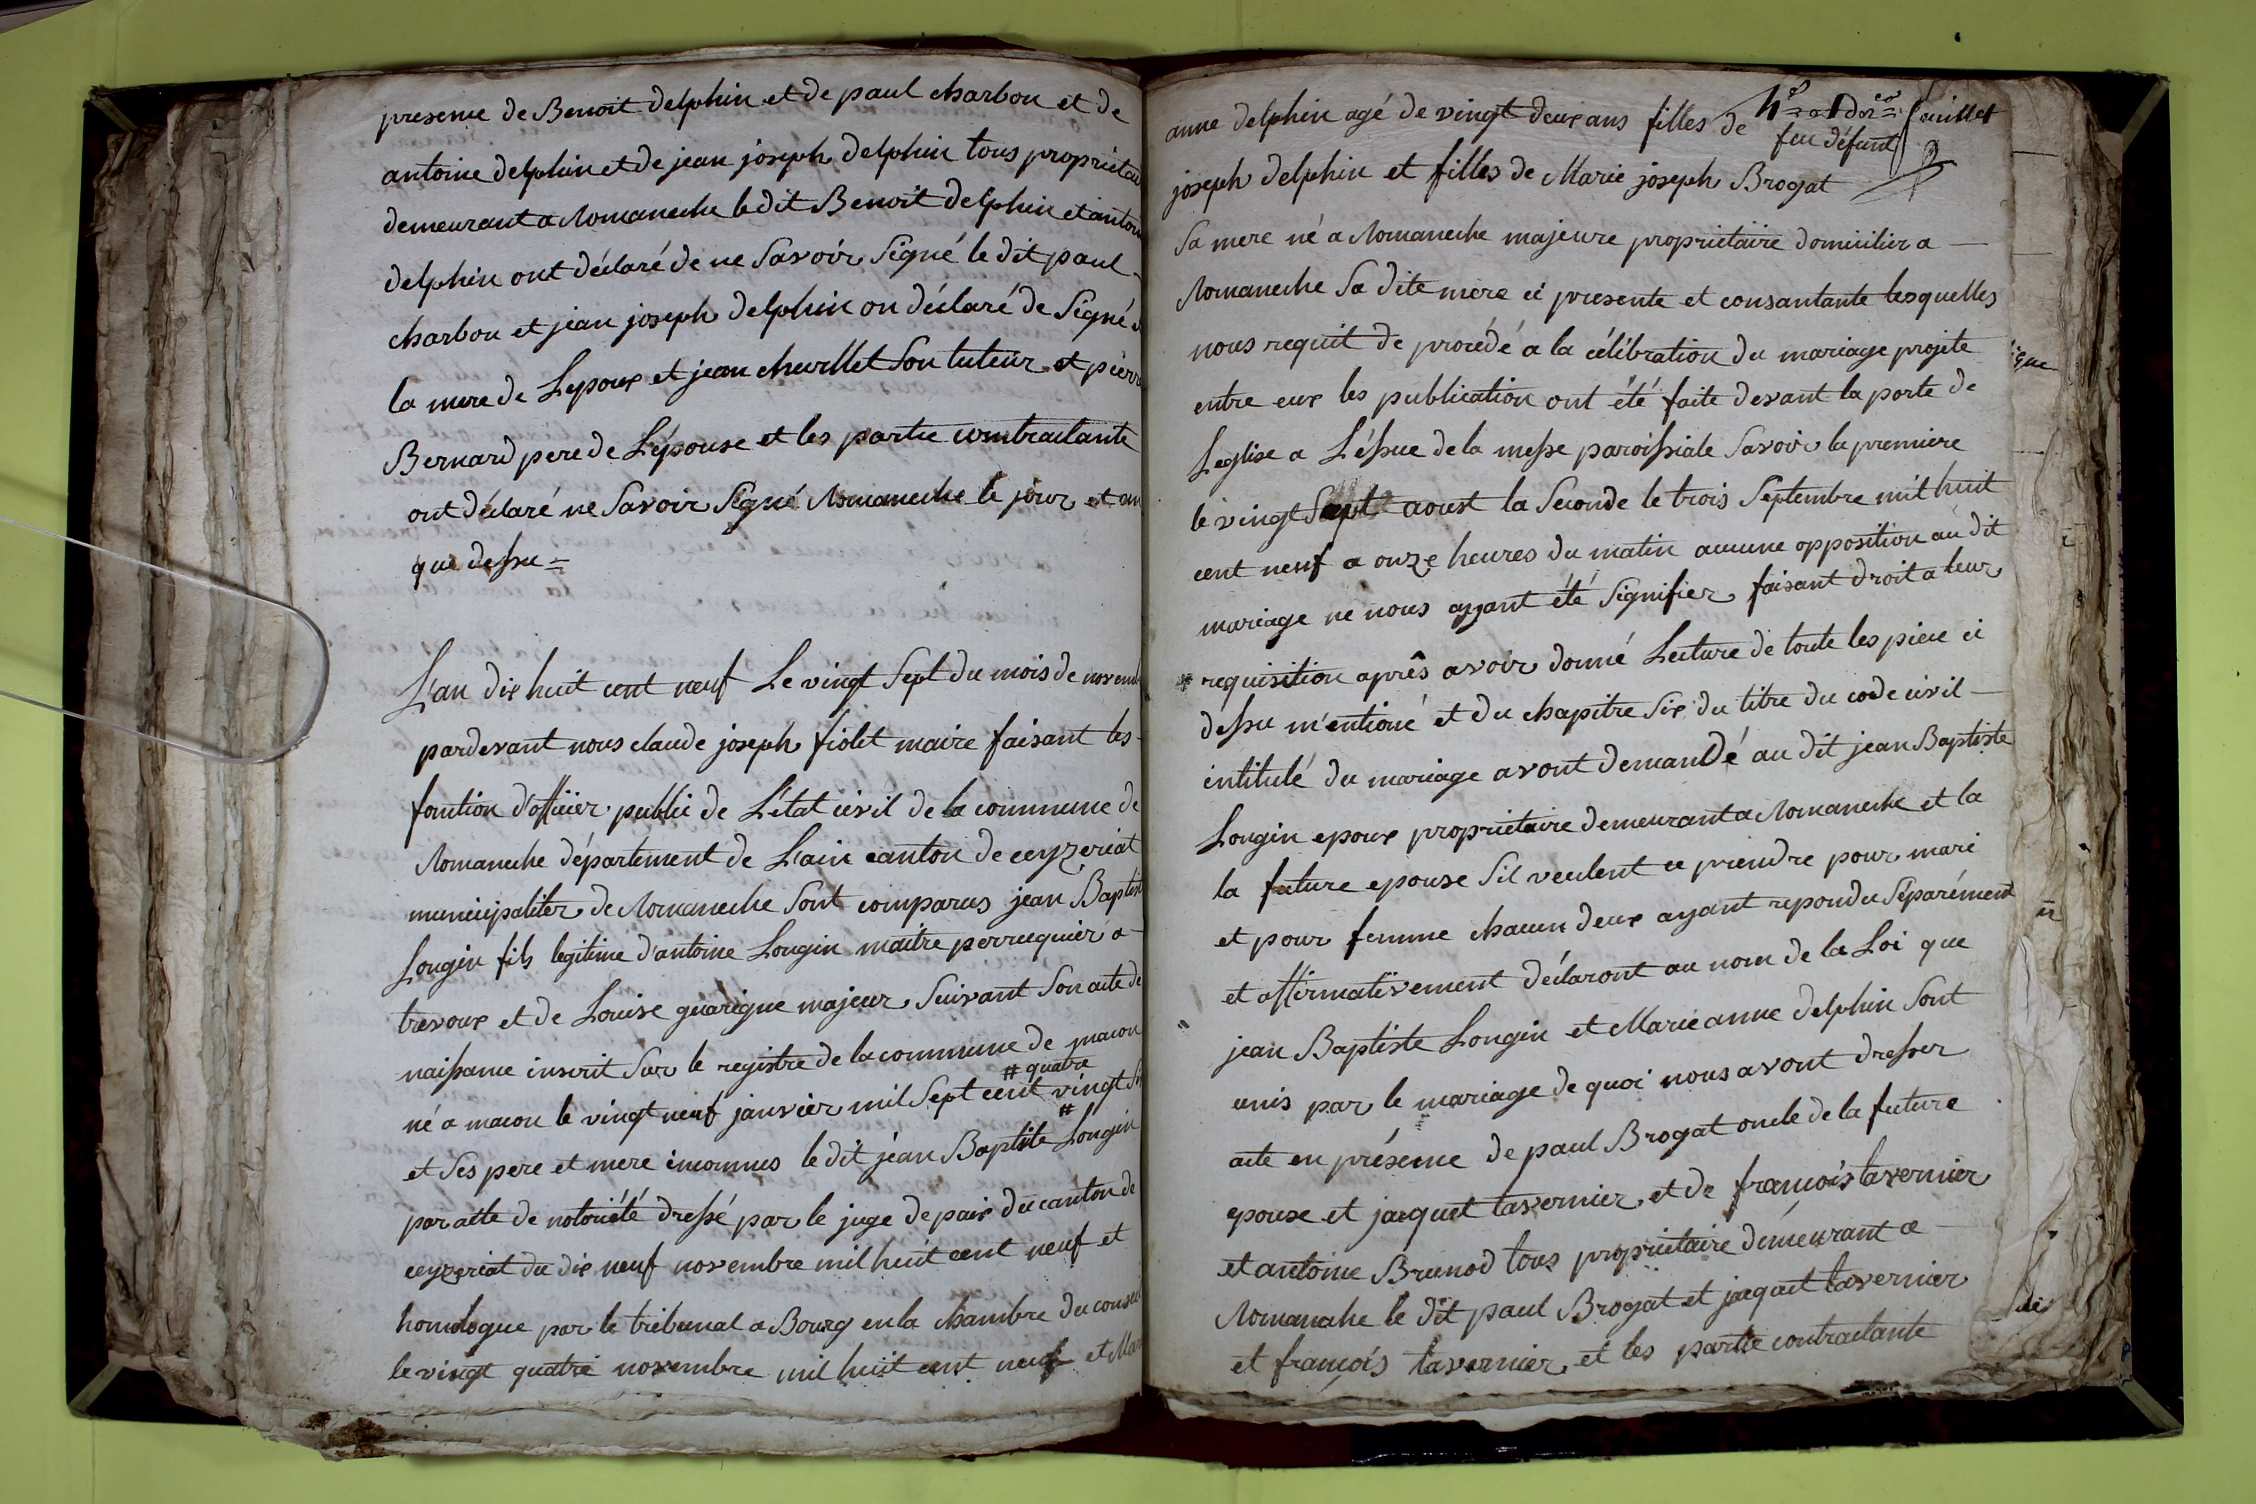 presence de Benoit delphin et de paul charbon et de
antoine delphin et de jean joseph delphin tous proprietai
demeurant a Romaneche le dit Benoit delphin et antoin
delphin ont déclaré de ne Savoir Signé le dit paul
charbon et jean joseph delphin on déclaré de Signé
la mere de Lepoux et jean chevillet Son tuteur et pierre
Bernard pere de L'épouse et les partie contractante
ont déclaré ne Savoir Signé Romaneche le jour et an
que dessu =
L'an dix huit cent neuf Le vingt Sept du mois de novemb
pardevant nous claude joseph fiolet maire faisant les
fonction d'officier public de L'état civil de la commune de
Romaneche département de L'ain canton de ceyzeriat
municipaliter de Romaneche Sont comparus jean Baptist
Longin fils legitime d'antoine Longin maitre perruquier a
trevoux et de Louise guarigue majeur Suivant Son acte de
naissance inscrit Sur le registre de la commune de macon
# quatre
né a macon le vingt neuf janvier mil Sept cent vingt Si
#
et Ses pere et mere inconnus le dit jean Baptiste Longin
par acte de notoriété dressé par le juge de paix du canton de
ceyzeriat du dix neuf novembre mil huit cent neuf et
homologue par le tribunal a Bourg en la chambre du conseil
le vingt quatre novembre mil huit cent neuf et Mar
anne delphin agé de vingt deux ans filles de feuillet
feu défunt
joseph delphin et filles de Marie joseph Brogat
Sa mere né a Romaneche majeure proprietaire domicilier a
Romaneche Sa dite mere ci presente et consantante lesquelles
nous requit de procédé a la célébration du mariage projete
entre eux les publication ont été faite devant la porte de
L'eglise a L'éssue de la messe paroissiale Savoir la premiere
le vingt Sept aoust la Seconde le trois Septembre mil huit
cent neuf a onze heures du matin aucune opposition au dit
mariage ne nous ayant été Signifier faisant droit a leur
requisition après avoir donné Lecture de toute les piece ci
dessu mentioné et du chapitre Six du titre du code civil
intitulé du mariage avont demandé au dit jean Baptiste
Longin epoux proprietaire demeurant a Romaneche et la
la future epouse Sil veulent ce prendre pour mari
et pour femme chacun deux ayant repondu Séparément
et affirmativement déclaront au nom de la Loi que
jean Baptiste Longin et Marie anne delphin Sont
unis par le mariage de quoi nous avont dresser
acte en présence de paul Brogat oncle de la future
epouse et jacquet tavernier et de françois tavernier
et antoine Brunod tous proprietaire demeurant a
Romanahe le dit paul Brogat et jacquet tavernier
et françois tavernier et les partie contractante